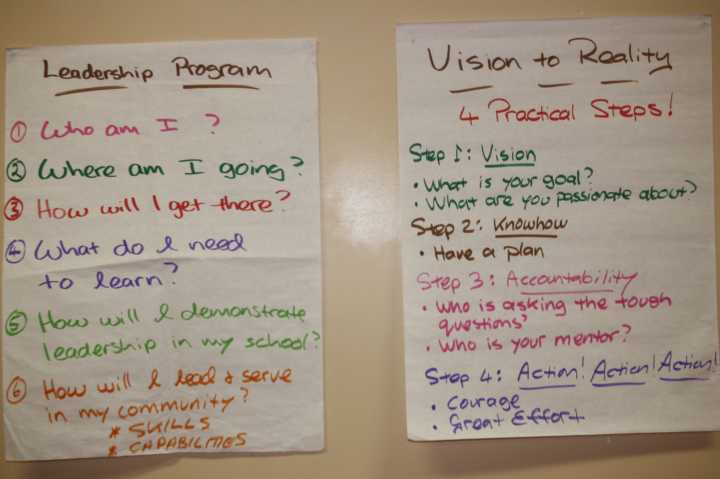 Leadership Program
① Who am I ?
② Where am I going?
③ How will I get there?
④ What do I need
to learn?
⑤ How will I demonstrate
leadership in my school?
⑥ How will I lead & serve
in my community?
* SKILLS
* CAPABILITIES
Vision to Reality
4 Practical Steps!
Step 1: Vision
• What is your goal?
• What are you passionate about?
Step 2: Knowhow
• Have a plan
Step 3: Accountability
• Who is asking the tough
questions'
• Who is your mentor?
Step 4: Action! Action! Action!
• Courage
• Great Effort